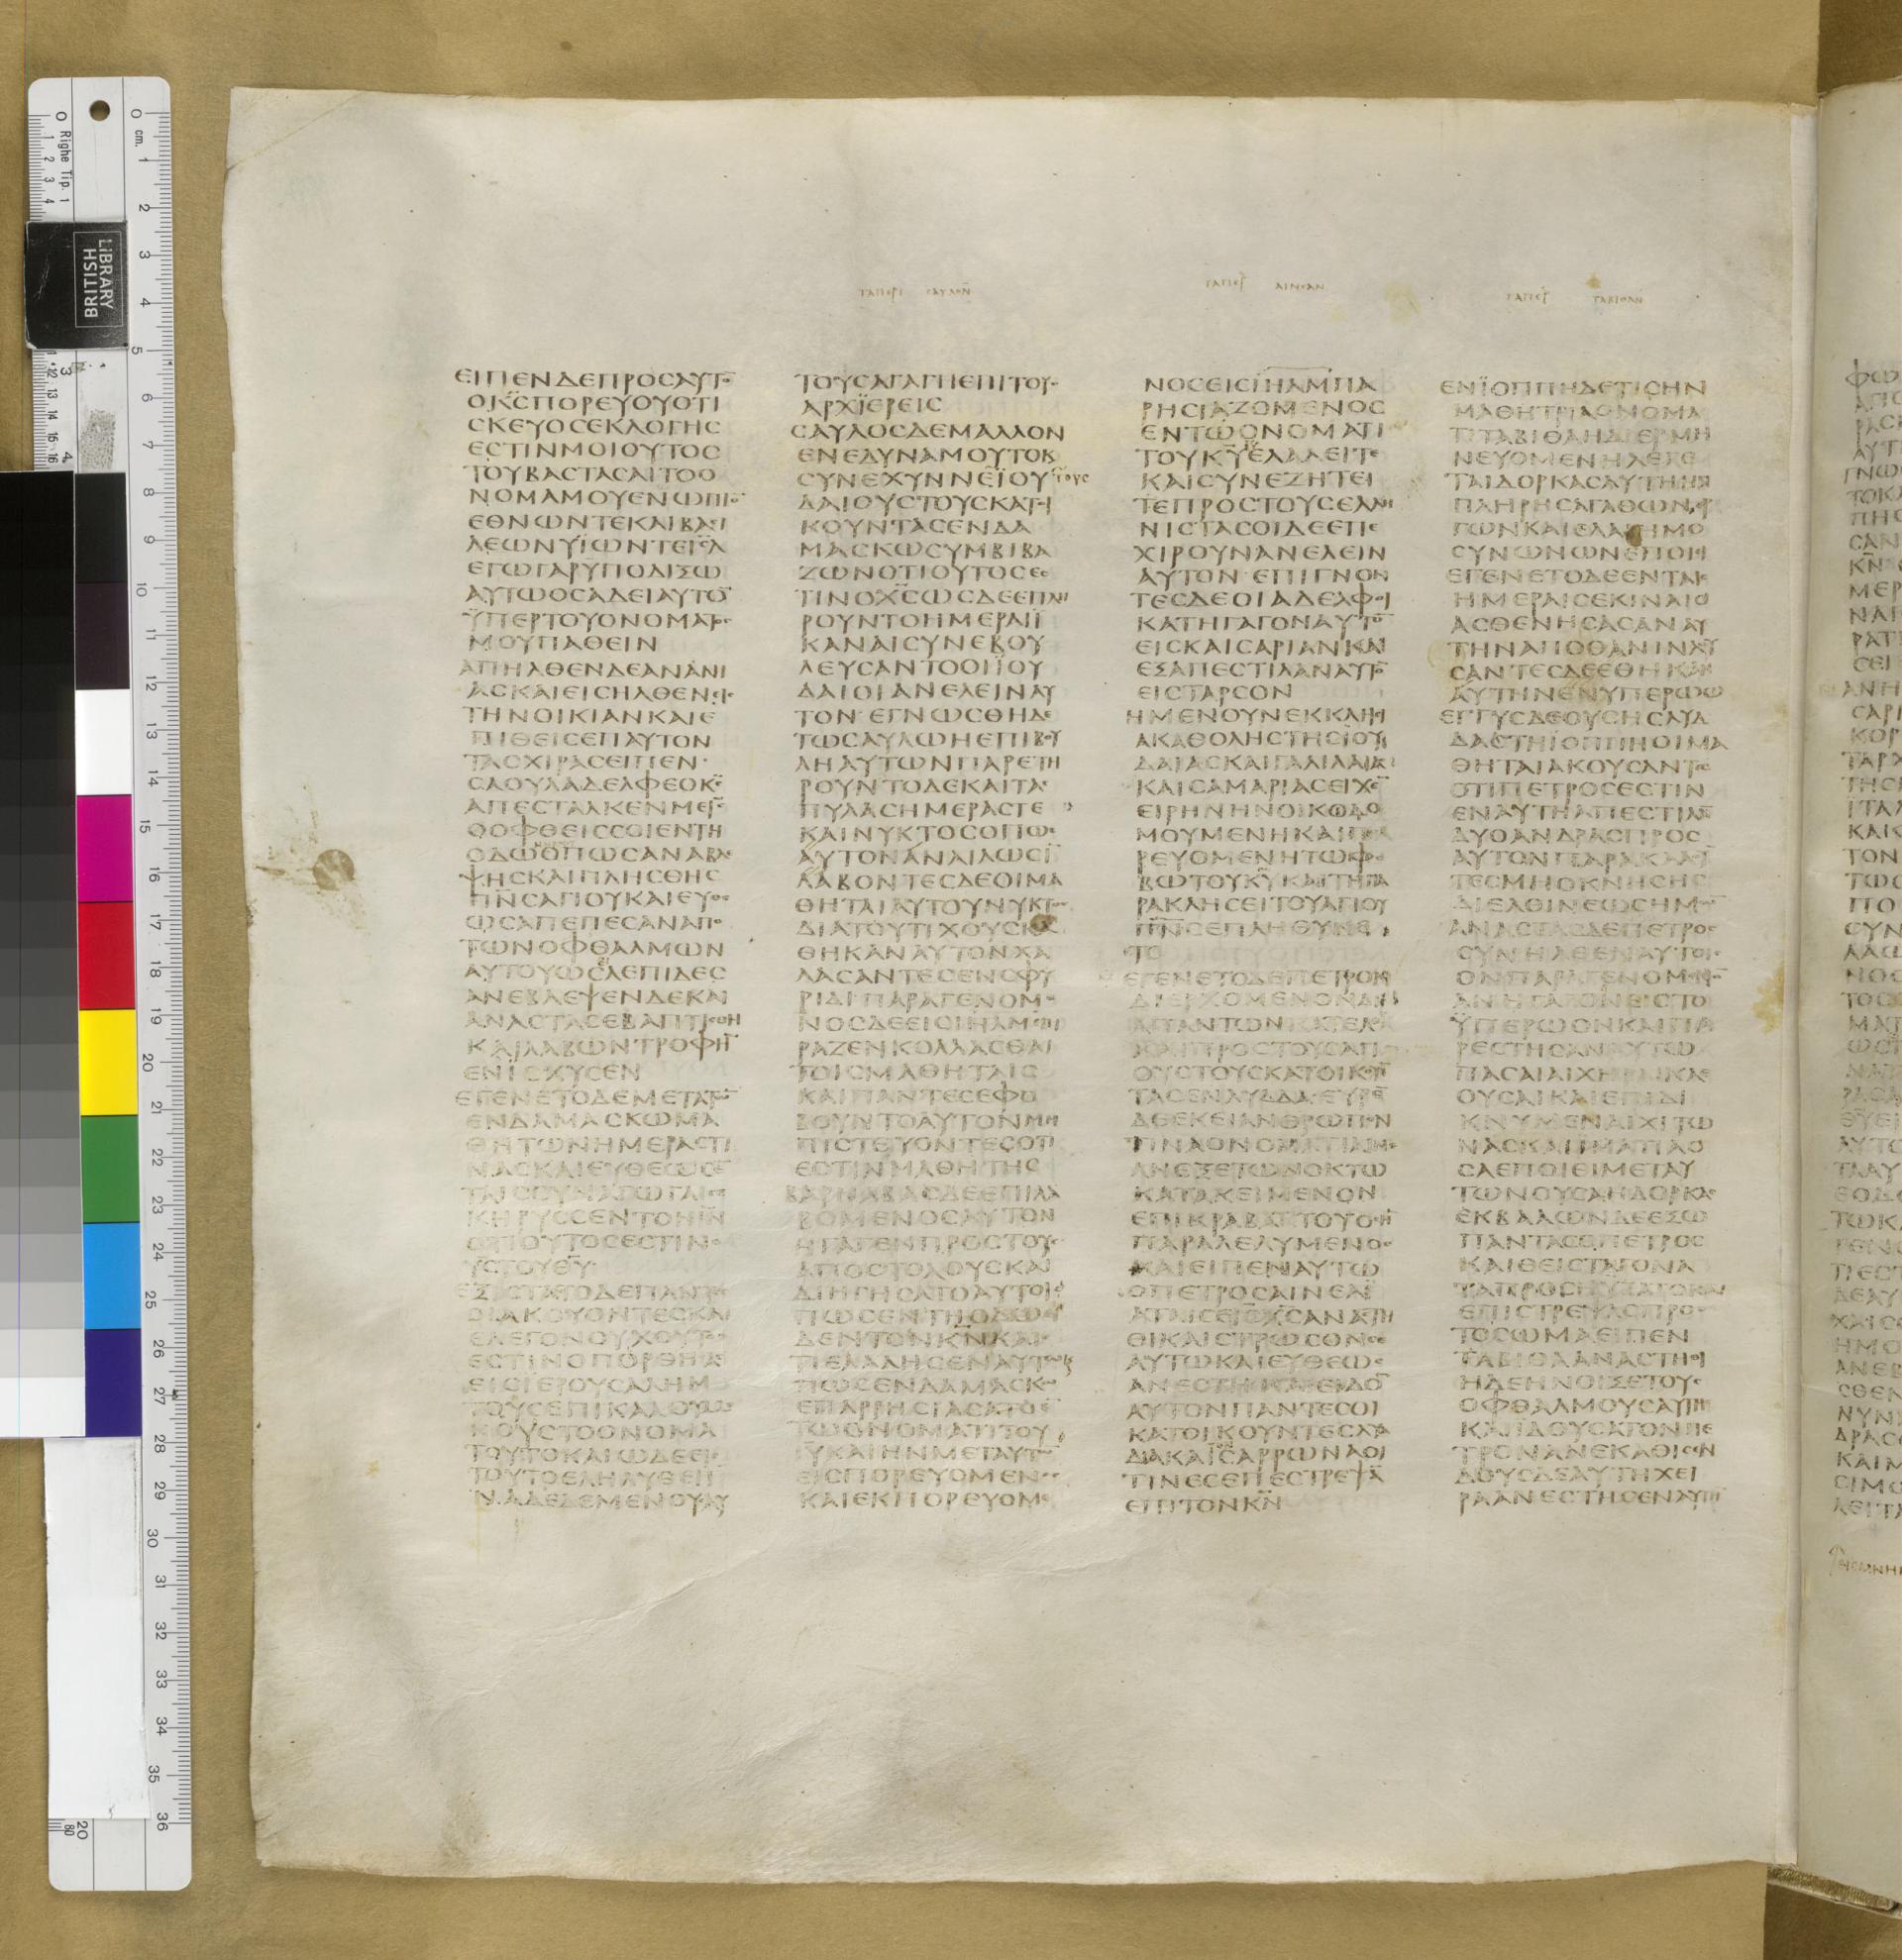 ΤΑΠΕΡΙ ΣΑΥΛΟΝ
ΤΑΠΕΡ ΑΙΝΕΑΝ
ΤΑΠΕΡ ΤΑΒΙΘΑΝ
ΕΙΠΕΝΔΕΠΡΟCΑΥΤΟ̅
ΟΚ̅C̅ΠΟΡΕΥΟΥΟΤΙ
CΚΕΥΟCΕΚΛΟΓΗC
ΕCΤΙΝΜΟΙΟΥΤΟC
ΤΟΥΒΑCΤΑCΑΙΤΟΟ
ΝΟΜΑΜΟΥΕΝΩΠΙΟ̅
ΕΘΝΩΝΤΕΚΑΙΒΑCΙ
ΛΕΩΝΥΪΩΝΤΕΙ̅C̅Λ̅
ΕΓΩΓΑΡΥΠΟΔΙΞΩ
ΑΥΤΩΟCΑΔΕΙΑΥΤΟ̅
ΫΠΕΡΤΟΥΟΝΟΜΑΤΟC
ΜΟΥΠΑΘΕΙΝ
ΑΠΗΛΘΕΝΔΕΑΝΑΝΙ
ΑCΚΑΙΕΙCΗΛΘΕΝΕΙC
ΤΗΝΟΙΚΙΑΝΚΑΙΕ
ΠΙΘΕΙCΕΠΑΥΤΟΝ
ΤΑCΧΙΡΑCΕΙΠΕΝ
CΑΟΥΛΑΔΕΛΦΕΟΚ̅C̅
ΑΠΕCΤΑΛΚΕΝΜΕΙ̅C̅
ΟΟΦΘΕΙCCΟΙΕΝΤΗ
ΟΔΩΟΠΩCΑΝΑΒΛΕ
ΨΗCΚΑΙΠΛΗCΘΗC
Π̅Ν̅C̅ΑΓΙΟΥΚΑΙΕΥΘΕ
ΩCΑΠΕΠΕCΑΝΑΠΟ
ΤΩΝΟΦΘΑΛΜΩΝ
ΑΥΤΟΥΩCΛΕΠΙΔΕC
ΑΝΕΒΛΕΨΕΝΔΕΚΑΙ
ΑΝΑCΤΑCΕΒΑΠΤΙCΘΗ
ΚΑΙΛΑΒΩΝΤΡΟΦΗ̅
ΕΝΙCΧΥCΕΝ
ΕΓΕΝΕΤΟΔΕΜΕΤΑΤΩ̅
ΕΝΔΑΜΑCΚΩΜΑ
ΘΗΤΩΝΗΜΕΡΑCΤΙ
ΝΑCΚΑΙΕΥΘΕΩCΕ̅
ΤΑΙCCΥΝΑΓΩΓΑΙC
ΚΗΡΥCCΕΝΤΟΝΙ̅Ν̅
ΟΤΙΟΥΤΟCΕCΤΙΝΟ
ΥCΤΟΥΘ̅Υ̅
ΕΞΙCΤΑΤΟΔΕΠΑΝΤΕC
ΟΙΑΚΟΥΟΝΤΕCΚΑΙ
ΕΛΕΓΟΝΟΥΧΟΥΤΟC
ΕCΤΙΝΟΠΟΡΘΗCΑC
ΕΙCΙΕΡΟΥCΑΛΗΜ
ΤΟΥCΕΠΙΚΑΛΟΥΜΕ
ΝΟΥCΤΟΟΝΟΜΑ
ΤΟΥΤΟΚΑΙΩΔΕΕΙC
ΤΟΥΤΟΕΛΗΛΥΘΕΙ
ΝΑΔΕΔΕΜΕΝΟΥCΑΥ
ΤΟΥCΑΓΑΓΗΕΠΙΤΟΥC
ΑΡΧΙΕΡΕΙC
CΑΥΛΟCΔΕΜΑΛΛΟΝ
ΕΝΕΔΥΝΑΜΟΥΤΟΚ
CΥΝΕΧΥΝΝΕΪΟΥΤΟΥC
ΔΑΙΟΥCΤΟΥCΚΑΤΟΙ
ΚΟΥΝΤΑCΕΝΔΑ
ΜΑCΚΩCΥΜΒΙΒΑ
ΖΩΝΟΤΙΟΥΤΟCΕC
ΤΙΝΟΧ̅C̅ΩCΔΕΕΠΛΗ
ΡΟΥΝΤΟΗΜΕΡΑΙΪ
ΚΑΝΑΙCΥΝΕΒΟΥ
ΛΕΥCΑΝΤΟΟΙΪΟΥ
ΔΑΙΟΙΑΝΕΛΕΙΝΑΥ
ΤΟΝΕΓΝΩCΘΗΔΕ
ΤΩCΑΥΛΩΗΕΠΙΒΟΥ
ΛΗΑΥΤΩΝΠΑΡΕΤΗ
ΡΟΥΝΤΟΔΕΚΑΙΤΑC
ΠΥΛΑCΗΜΕΡΑCΤΕ
ΚΑΙΝΥΚΤΟCΟΠΩC
ΑΥΤΟΝΑΝΑΙΛΩCΙ̅
ΛΑΒΟΝΤΕCΔΕΟΙΜΑ
ΘΗΤΑΙΑΥΤΟΥΝΥΚΤΟC
ΔΙΑΤΟΥΤΙΧΟΥCΚΑ
ΘΗΚΑΝΑΥΤΟΝΧΑ
ΛΑCΑΝΤΕCΕΝCΦΥ
ΡΙΔΙΠΑΡΑΓΕΝΟΜΕ
ΝΟCΔΕΕΙCΙΗΛΜΕΠΙ
ΡΑΖΕΝΚΟΛΛΑCΘΑΙ
ΤΟΙCΜΑΘΗΤΑΙC
ΚΑΙΠΑΝΤΕCΕΦΟ
ΒΟΥΝΤΟΑΥΤΟΝΜΗ
ΠΙCΤΕΥΟΝΤΕCΟΤΙ
ΕCΤΙΝΜΑΘΗΤΗC
ΒΑΡΝΑΒΑCΔΕΕΠΙΛΑ
ΒΟΜΕΝΟCΑΥΤΟΝ
ΗΓΑΓΕΝΠΡΟCΤΟΥC
ΑΠΟCΤΟΛΟΥCΚΑΙ
ΔΙΗΓΗCΑΤΟΑΥΤΟΙC
ΠΩCΕΝΤΗΟΔΩΕΙ
ΔΕΝΤΟΝΚ̅Ν̅ΚΑΙΟ
ΤΙΕΛΑΛΗCΕΝΑΥΤΩΚ
ΠΩCΕΝΔΑΜΑCΚΩ
ΕΠΑΡΡΗCΙΑCΑΤΟΕ̅
ΤΩΟΝΟΜΑΤΙΤΟΥ
Ι̅Υ̅ΚΑΙΗΝΜΕΤΑΥΤΩ̅
ΕΙCΠΟΡΕΥΟΜΕΝΟC
ΚΑΙΕΚΠΟΡΕΥΟΜΕ
ΝΟCΕΙCΙΗΛΜΠΑ
ΡΗCΙΑΖΟΜΕΝΟC
ΕΝΤΩΟΝΟΜΑΤΙ
ΤΟΥΚ̅Υ̅ΕΛΑΛΕΙΤΕ
ΚΑΙCΥΝΕΖΗΤΕΙ
ΤΕΠΡΟCΤΟΥCΕΛΛΗ
ΝΙCΤΑCΟΙΔΕΕΠΕ
ΧΙΡΟΥΝΑΝΕΛΕΙΝ
ΑΥΤΟΝΕΠΙΓΝΟΝ
ΤΕCΔΕΟΙΑΔΕΛΦΟΙ
ΚΑΤΗΓΑΓΟΝΑΥΤΟ̅
ΕΙCΚΑΙCΑΡΙΑΝΚΑΙ
ΕΞΑΠΕCΤΙΛΑΝΑΥΤΟ̅
ΕΙCΤΑΡCΟΝ
ΗΜΕΝΟΥΝΕΚΚΛΗCΙ
ΑΚΑΘΟΛΗCΤΗCΙΟΥ
ΔΑΙΑCΚΑΙΓΑΛΙΛΑΙΑC
ΚΑΙCΑΜΑΡΙΑCΕΙΧΕ̅
ΕΙΡΗΝΗΝΟΙΚΟΔΟ
ΜΟΥΜΕΝΗΚΑΙΠΟ
ΡΕΥΟΜΕΝΗΤΩΦΟ
ΒΩΤΟΥΚ̅Υ̅ΚΑΙΤΗΠΑ
ΡΑΚΛΗCΕΙΤΟΥΑΓΙΟΥ
Π̅Ν̅C̅ΕΠΛΗΘΥΝΕ
ΤΟ
ΕΓΕΝΕΤΟΔΕΠΕΤΡΟΝ
ΔΙΕΡΧΟΜΕΝΟΝΔΙΑ
ΠΑΝΤΩΝΚΑΤΕΛΘΙ̅
ΚΑΙΠΡΟCΤΟΥCΑΓΙ
ΟΥCΤΟΥCΚΑΤΟΙΚΟΥ̅
ΤΑCΕΝΛΥΔΔΑΕΥΡΕ̅
ΔΕΕΚΕΙΑΝΘΡΩΠΟΝ
ΤΙΝΑΟΝΟΜΑΤΙΑΙΝΕ
ΑΝΕΞΕΤΩΝΟΚΤΩ
ΚΑΤΑΚΕΙΜΕΝΟΝ
ΕΠΙΚΡΑΒΑΚΤΟΥΟCΗ̅
ΠΑΡΑΛΕΛΥΜΕΝΟC
ΚΑΙΕΙΠΕΝΑΥΤΩ
ΟΠΕΤΡΟCΑΙΝΕΑΪ
ΑΤΑΙCΕΙ̅C̅Χ̅C̅ΑΝΑCΤΗ
ΘΙΚΑΙCΤΡΩCΟΝCΕ
ΑΥΤΩΚΑΙΕΥΘΕΩC
ΑΝΕCΤΗΚΑΙΕΙΔΟ̅
ΑΥΤΟΝΠΑΝΤΕCΟΙ
ΚΑΤΟΙΚΟΥΝΤΕCΛΥΔ
ΔΑΚΑΙCΑΡΡΩΝΑΟΙ
ΤΙΝΕCΕΠΕCΤΡΕΨΑ̅
ΕΠΙΤΟΝΚ̅Ν̅
ΕΝΪΟΠΠΗΔΕΤΙCΗΝ
ΜΑΘΗΤΡΙΑΟΝΟΜΑ
ΤΙΤΑΒΙΘΑΗΔΙΕΡΜΗ
ΝΕΥΟΜΕΝΗΛΕΓΕ
ΤΑΙΔΟΡΚΑCΑΥΤΗΗΝ
ΠΛΗΡΗCΑΓΑΘΩΝΕΡ
ΓΩΝΚΑΙΕΛΑΙΗΜΟ
CΥΝΩΝΩΝΕΠΟΙΕΙ
ΕΓΕΝΕΤΟΔΕΕΝΤΑΙC
ΗΜΕΡΑΙCΕΚΙΝΑΙC
ΑCΘΕΝΗCΑCΑΝΑΥ
ΤΗΝΑΠΟΘΑΝΙΝΛΟΥ
CΑΝΤΕCΔΕΕΘΗΚΑΝ
ΑΥΤΗΝΕΝΥΠΕΡΩΩ
ΕΓΓΥCΔΕΟΥCΗCΛΥΔ
ΔΑCΤΗΪΟΠΠΗΟΙΜΑ
ΘΗΤΑΙΑΚΟΥCΑΝΤΕC
ΟΤΙΠΕΤΡΟCΕCΤΙΝ
ΕΝΑΥΤΗΑΠΕCΤΙΛΑ̅
ΔΥΟΑΝΔΡΑCΠΡΟC
ΑΥΤΟΝΠΑΡΑΚΑΛΟΥ̅
ΤΕCΜΗΟΚΝΗCΗC
ΔΙΕΛΘΙΝΕΩCΗΜΩ̅
ΑΝΑCΤΑCΔΕΠΕΤΡΟC
CΥΝΗΛΘΕΝΑΥΤΟΙC
ΟΝΠΑΡΑΓΕΝΟΜΕΝΟ̅
ΑΝΗΓΑΓΟΝΕΙCΤΟ
ΫΠΕΡΩΟΝΚΑΙΠΑ
ΡΕCΤΗCΑΝΑΥΤΩ
ΠΑCΑΙΑΙΧΗΡΑΙΚΛΕ
ΟΥCΑΙΚΑΙΕΠΙΔΙ
ΚΝΥΜΕΝΑΙΧΙΤΩ
ΝΑCΚΑΙΙΜΑΤΙΑΟ
CΑΕΠΟΙΕΙΜΕΤΑΥ
ΤΩΝΟΥCΑΗΔΟΡΚΑC
ΕΚΒΑΛΩΝΔΕΕΞΩ
ΠΑΝΤΑCΟΠΕΤΡΟC
ΚΑΙΘΕΙCΤΑΓΟΝΑ
ΤΑΠΡΟCΗΥΞΑΤΟΚΑΙ
ΕΠΙCΤΡΕΨΑCΠΡΟC
ΤΟCΩΜΑΕΙΠΕΝ
ΤΑΒΙΘΑΑΝΑCΤΗΘΙ
ΗΔΕΗΝΟΙΞΕΤΟΥC
ΟΦΘΑΛΜΟΥCΑΥΤΗC
ΚΑΙΪΔΟΥCΑΤΟΝΠΕ
ΤΡΟΝΑΝΕΚΑΘΙCΕΝ
ΔΟΥCΔΕΑΥΤΗΧΕΙ
ΡΑΑΝΕCΤΗCΕΝΑΥΤΗ̅